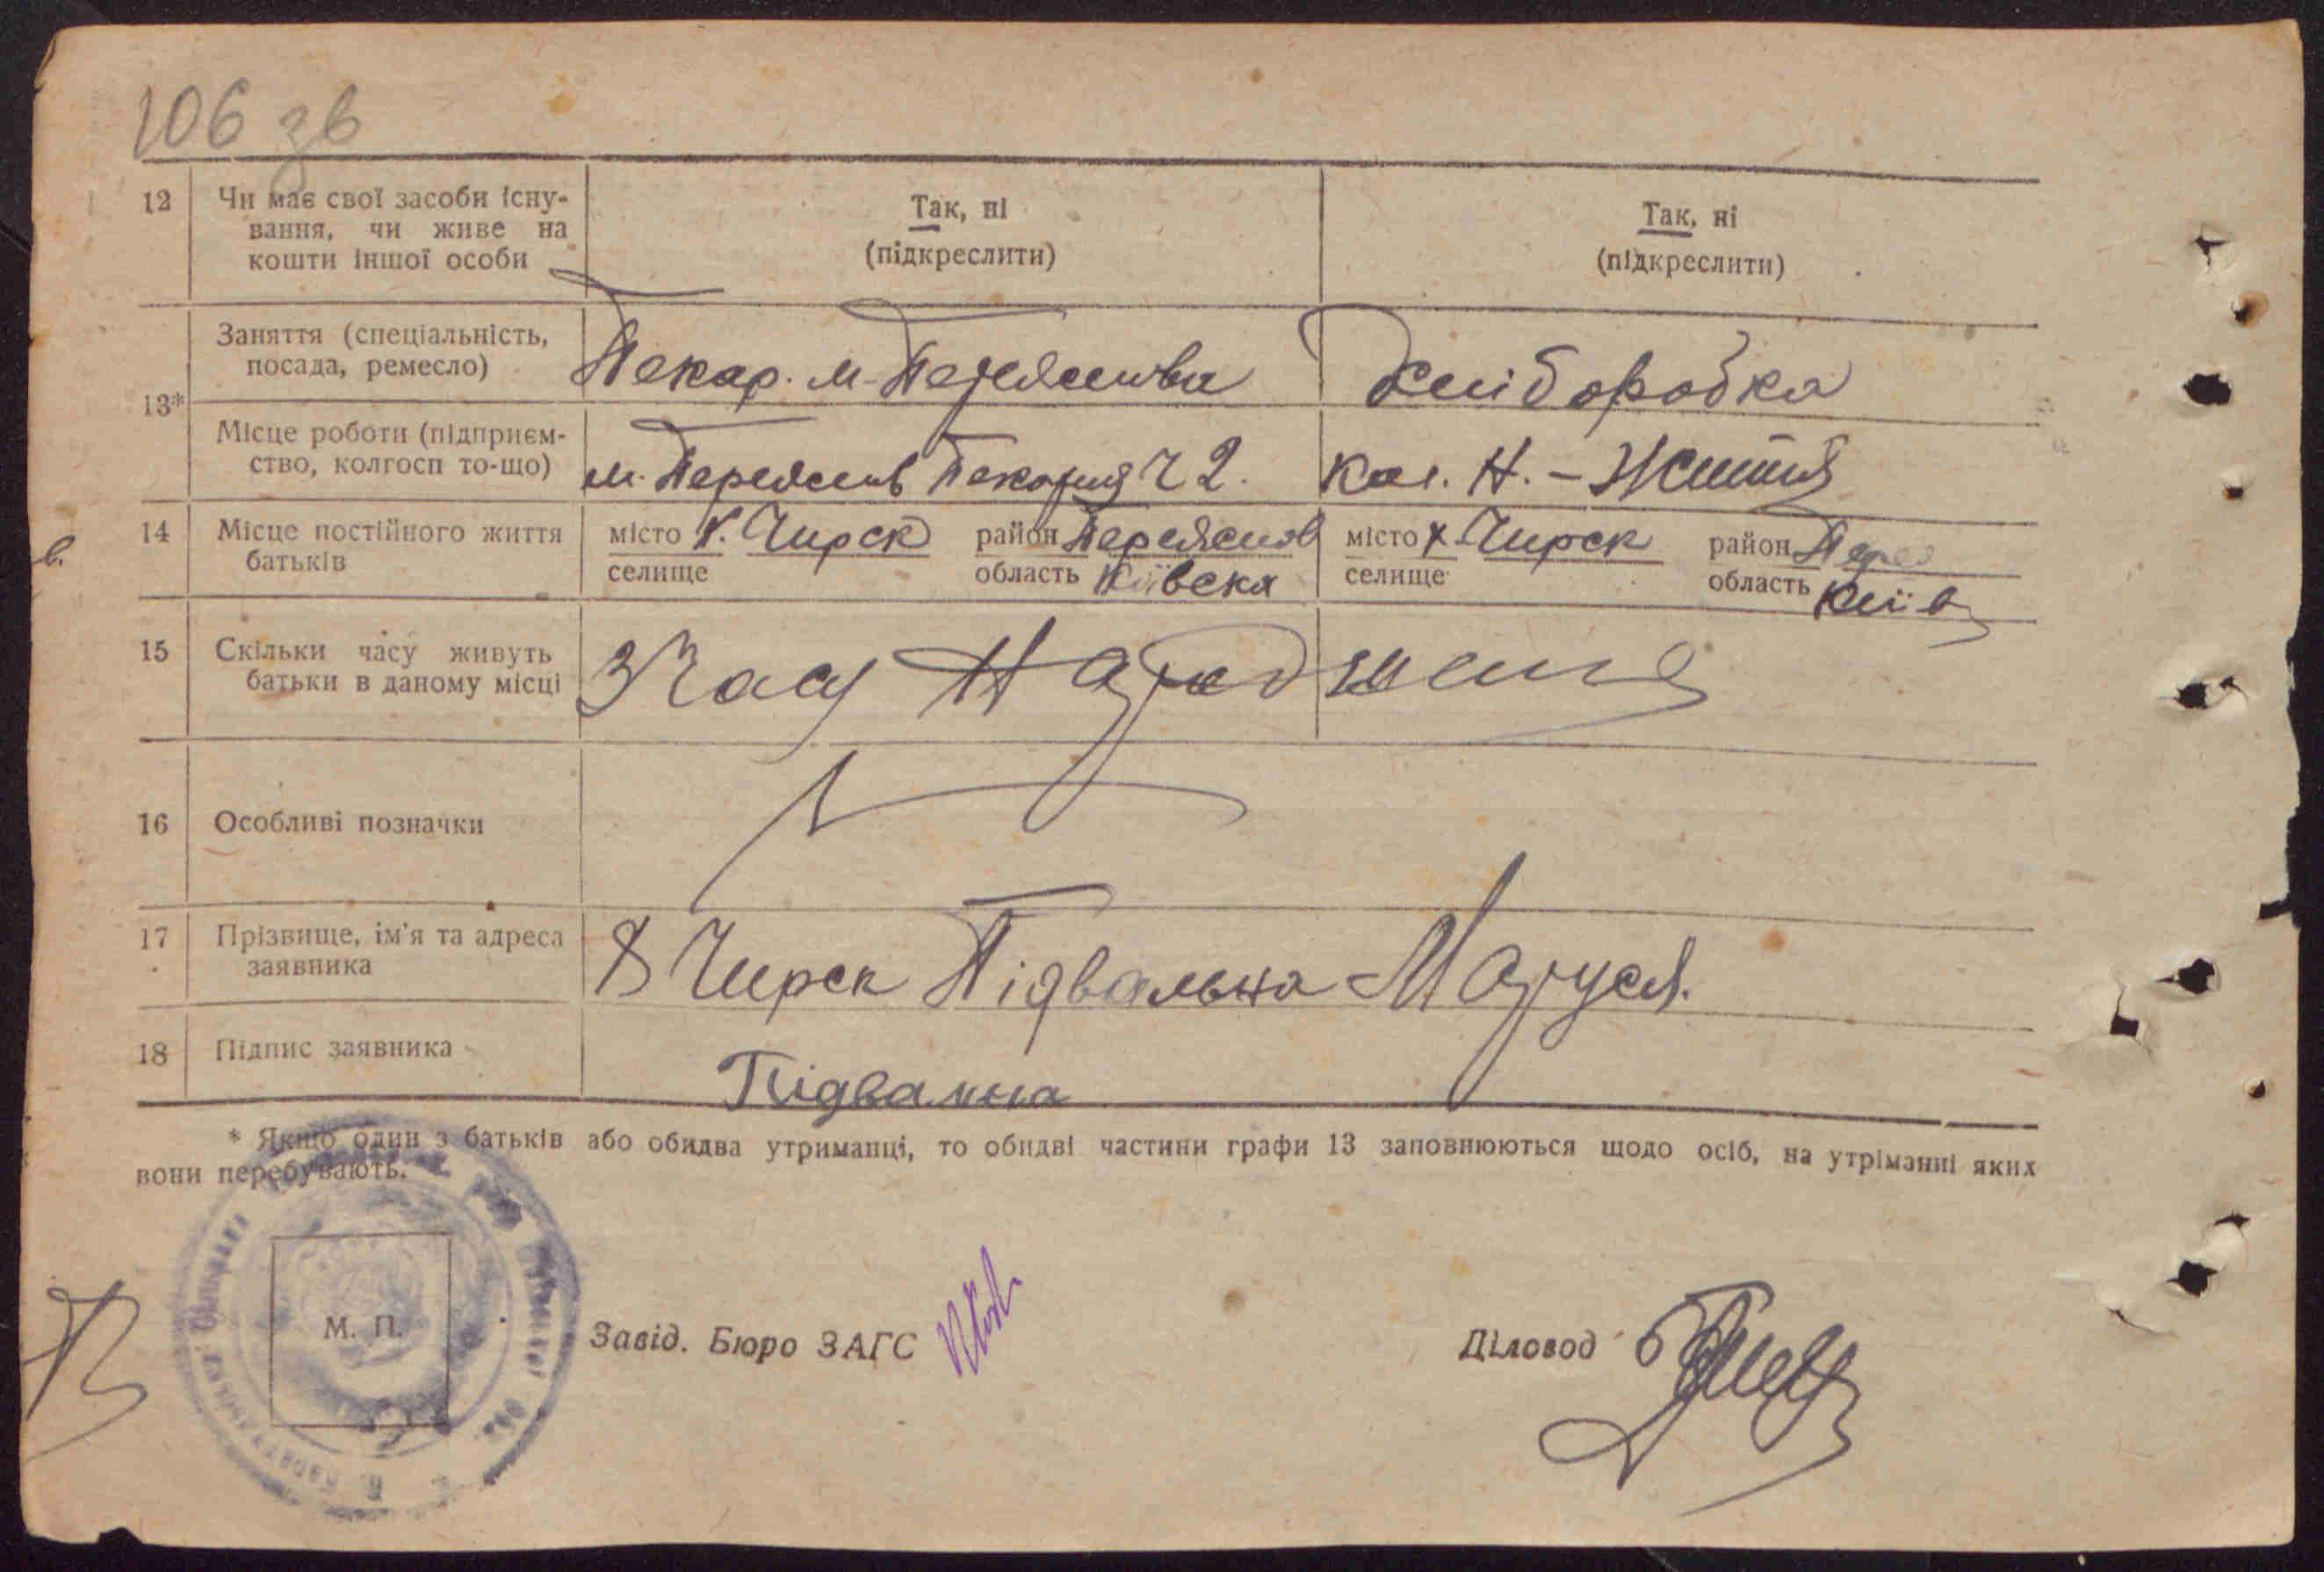 106 зв
12 Чи має свої засоби існу- Так, ні Так, ні
вання, чи живе на (підкреслити) (підкреслити)
кошти іншої особи
13* Заняття (спеціальність, Пекар. м. Переяслова Хліборобка
посада, ремесло)
Місце роботи (підприєм- м. Переяслів Пекарня Ч 2. Кол. Н.-Життя
ство, колгосп то-що)
14 Місце постійного життя місто х. Чирск район Переяслов місто х. Чирск район Перея
батьків селище область Київска селище область Київ
15 Скільки часу живуть З часу Народження
батьки в даному місці
16 Особливі позначки
17 Прізвище, ім'я та адреса Х Чирск Підвальна Маруся.
заявника
18 Підпис заявника Підвальна
* Якщо один з батьків або обидва утриманці, то обидві частини графи 13 заповнюються щодо осіб, на утріманні яких
вони перебувають.
М. П.
Завід. Бюро ЗАГС
Діловод